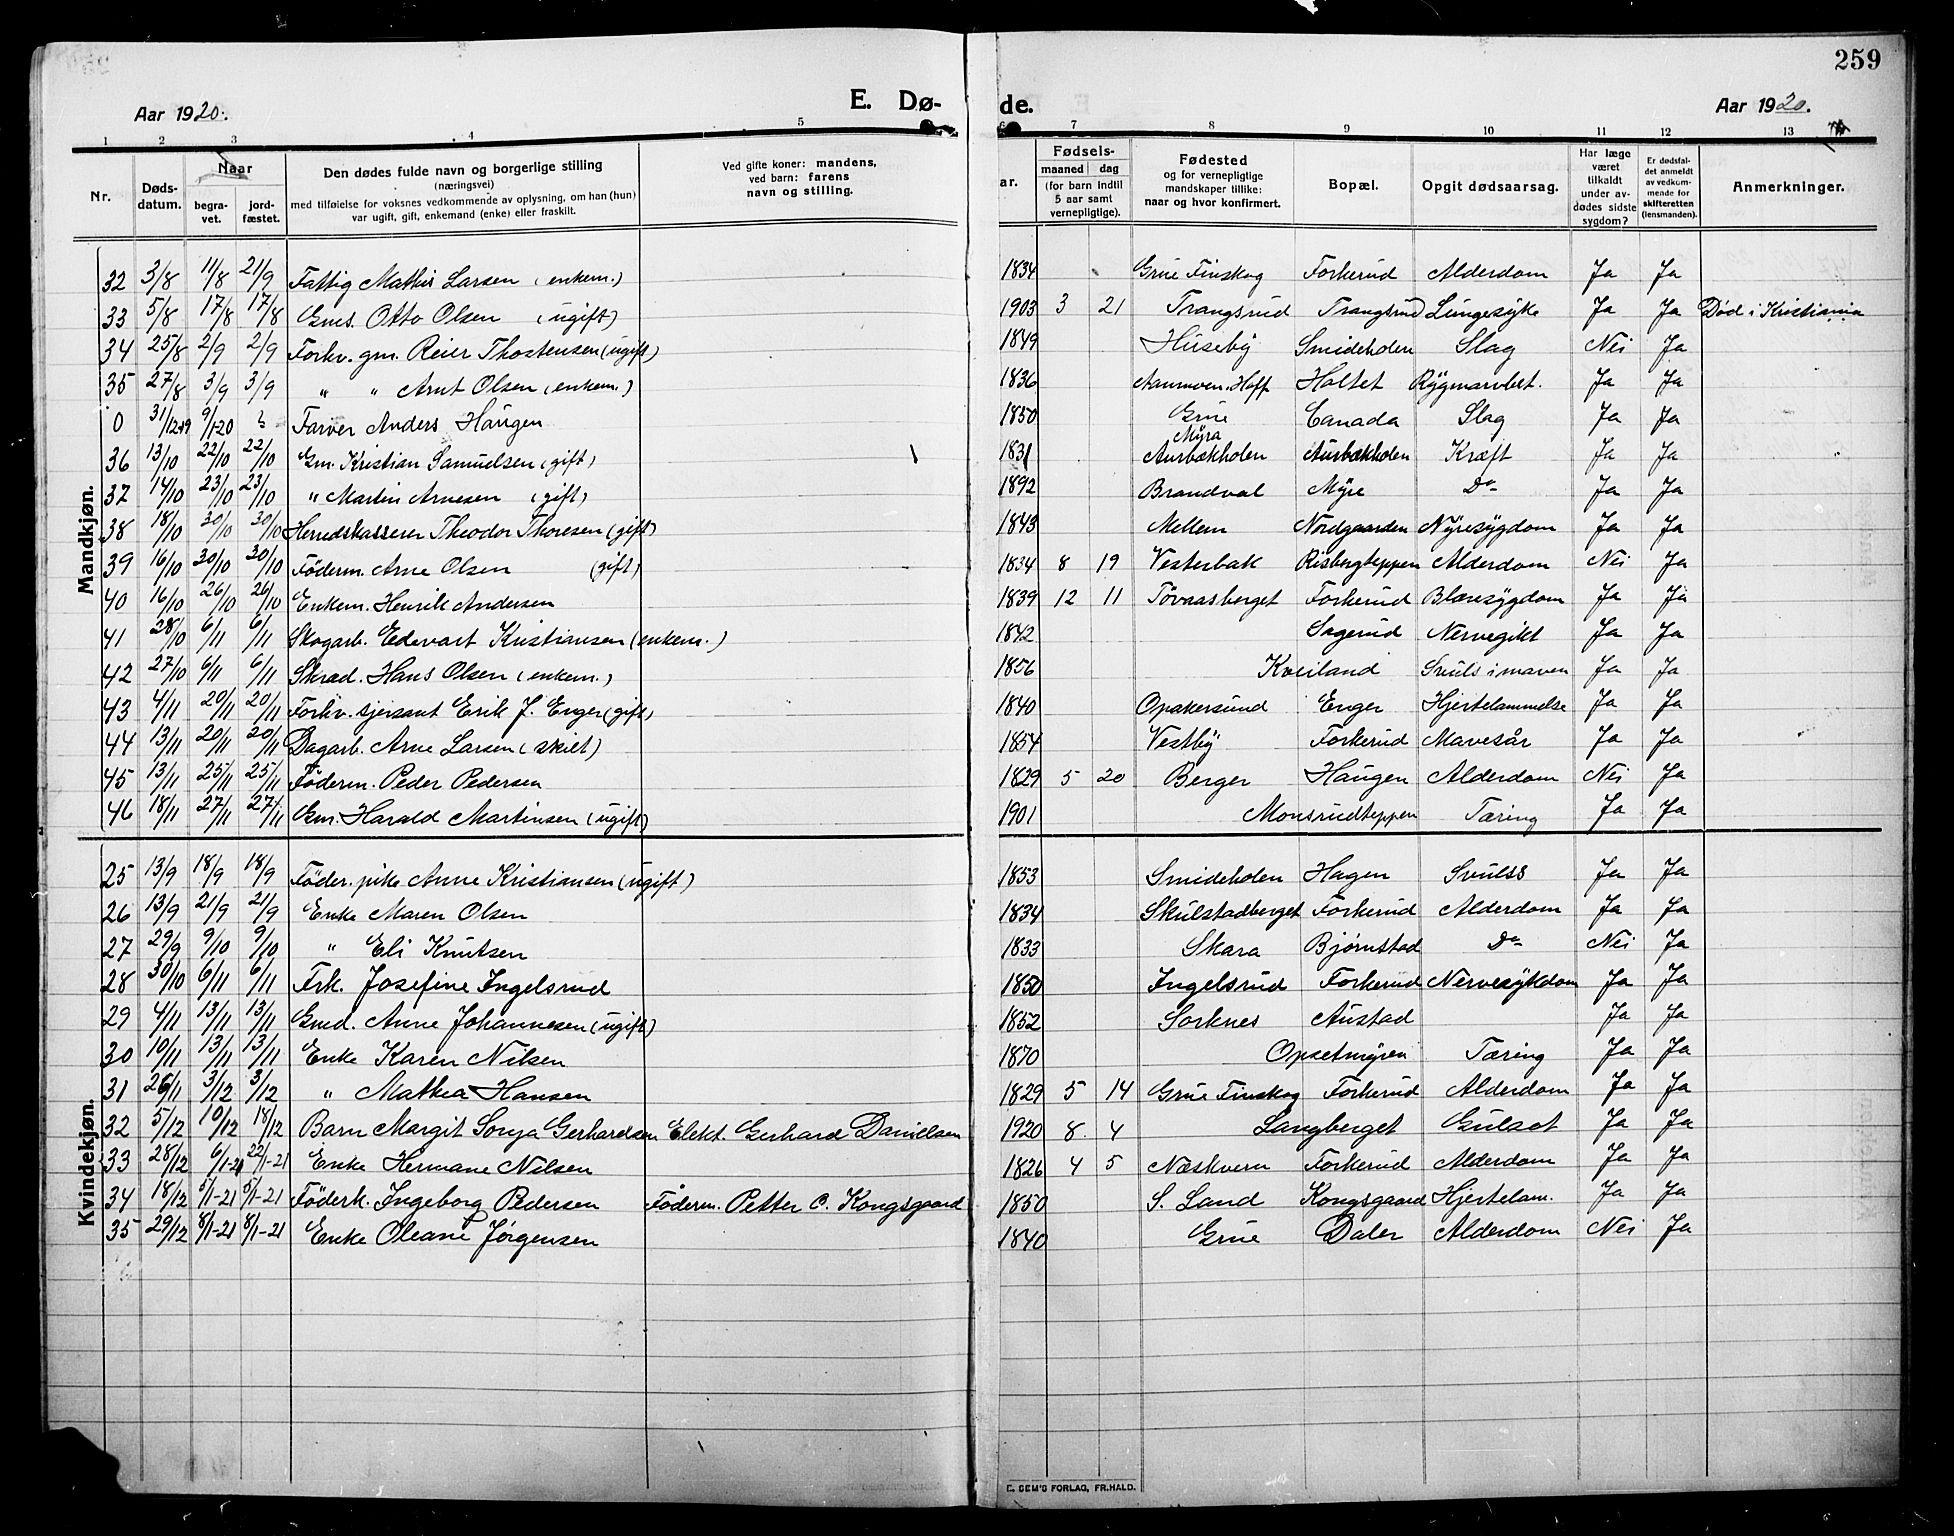 259
Aar 1920. E. Dø- de. Aar 1920.
1 2 3 4 5 6 7 8 9 10 11 12 13
Nr. Døds-datum. Naar begra-vet. jord-fæstet. Den dødes fulde navn og borgerlige stilling (næringsvei) med tilføielse for voksnes vedkommende av oplysning, om han (hun) var ugift, gift, enkemand (enke) eller fraskilt. Ved gifte koner: mandens, ved barn: farens navn og stilling. ar. Fødsels- maaned dag (for barn indtil 5 aar samt vernepligtige). Fødested og for vernepligtige mandskaper tillike: naar og hvor konfirmert. Bopæl. Opgit dødsaarsag. Har læge været tilkaldt under av-dødes sidste sygdom? Er dødsfal-det anmeldt av vedkom-mende for skifteretten (lensmanden). Anmerkninger.
Mandkjøn.
32 3/8 11/8 21/9 Fattig Mathis Larsen (enkem.) 1834 Grue Finskog Forkerud Alderdom Ja Ja
33 5/8 17/8 17/8 Gms. Otto Olsen (ugift) 1903 3 21 Trangsrud Trangsrud Lungesyke Ja Ja Død i Kristiania
34 25/8 2/9 2/9 Forhv. gm. Reier Thostensen (ugift) 1849 Huseby Smideholen Slag Nei Ja
35 27/8 3/9 3/9 " " Arnt Olsen (enkem.) 1836 Hoff Holtet Rygmarvbet. Ja Ja
0 31/12 9/1 20 Farver Anders Haugen 1850 Grue Canada Slag Ja Ja
36 13/10 22/10 22/10 Gm. Kristian Samuelsen (gift) 1831 Myra Aurbækholen Aurbækholen Kræft Ja Ja
37 14/10 23/10 23/10 " Martin Arnesen (gift) 1892 Brandval Myre Do Ja Ja
38 18/10 30/10 30/10 Herredskasserer Theodor Thoresen (gift) 1843 Mellem Nordgaarden Nyresygdom Ja Ja
39 16/10 30/10 30/10 Föderm. Arne Olsen (gift) 1834 8 19 Vesterbak Risbergteppen Alderdom Nei Ja
40 16/10 26/10 26/10 Enkem. Henrik Andersen 1839 12 11 Tovaasberget Forkerud Blæresygdom Ja Ja
41 28/10 6/11 6/11 Skogarb. Edevart Kristiansen (enkem.) 1842 Sagerud Nervegikt Ja Ja
42 27/10 6/11 6/11 Skræd. Hans Olsen (enkem.) 1856 Kveiland Svuls i maven Ja Ja
43 4/11 20/11 20/11 Forhv. sjersant Erik J. Enger (gift) 1840 Opakersund Enger Hjertelammelse Ja Ja
44 13/11 20/11 20/11 Dagarb. Arne Larsen (skilt) 1854 Vestby Forkerud Mavesår Ja Ja
45 13/11 25/11 25/11 Föderm. Peder Pedersen 1829 5 20 Berger Haugen Alderdom Nei Ja
46 18/11 27/11 27/11 Gm. Harald Martinsen (ugift) 1901 Monsrudteppen Tæring Ja Ja
Kvindekjøn.
25 13/9 18/9 18/9 Föder. pike Anne Kristiansen (ugift) 1853 Smideholen Hagen Svulss Ja Ja
26 13/9 21/9 21/9 Enke Maren Olsen 1834 Skulstadberget Forkerud Alderdom Ja Ja
27 29/9 9/10 9/10 " Eli Knutsen 1833 Skara Bjørnstad Do Nei Ja
28 30/10 6/11 6/11 Frk. Josefine Ingelsrud 1850 Ingelsrud Forkerud Nervesykdom Ja Ja
29 4/11 13/11 13/11 Gmd. Anne Johannesen (ugift) 1852 Sorknes Austad Ja Ja
30 10/11 13/11 13/11 Enke Karen Nilsen 1870 Opsetmyren Tæring Ja Ja
31 26/11 3/12 3/12 " Mathea Hansen 1829 5 14 Grue Finskog Forkerud Alderdom Ja Ja
32 5/12 10/12 18/12 Barn Margit Sonja Gerhardsen Elekt. Gerhard Danielsen 1920 8. 4 Langberget Gulsot Ja Ja
33 28/12 6/1-21 22/1-21 Enke Hermane Nilsen 1826 4 5 Næskvern Forkerud Alderdom Ja Ja
34 18/12 5/1-21 5/1-21 Föderk. Ingeborg Pedersen Föderm. Petter O. Kongsgaard 1850 S. Land Kongsgaard Hjertelam. Ja Ja
35 29/12 8/1-21 8/1-21 Enke Oleane Jørgensen 1840 Grue Daler Alderdom Nei Ja
E. SEM'S FORLAG, FR.HALD.